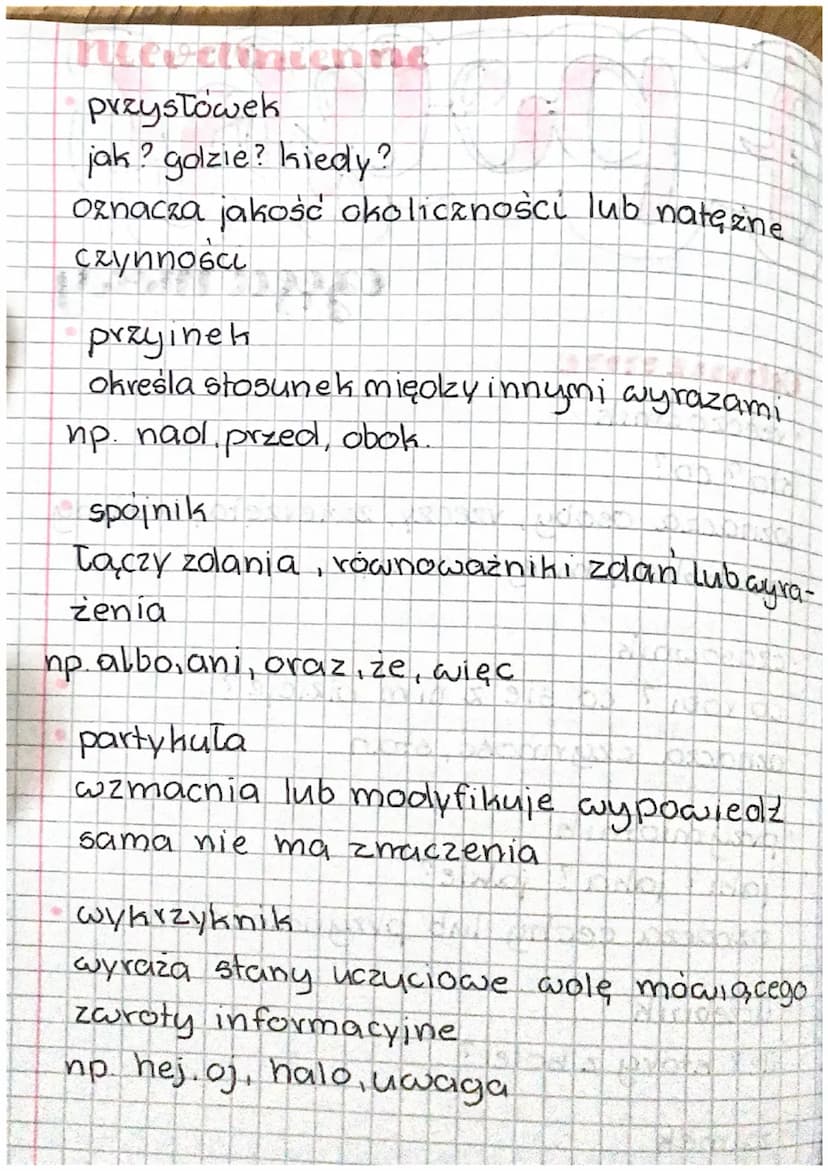 nieodmienne
przysłówek
jak? gdzie? kiedy?
oznacza jakość okoliczności lub natężne
czynności
przyinek
określa stosunek między innymi wyrazami
np. nad, przed, obok.
spójnik
łączy zdania, równoważniki zdań lub wyra-
żenia
np. albo, ani, oraz, że, więc
partykuła
wzmacnia lub modyfikuje wypowiedź
sama nie ma znaczenia
wykrzyknik
wyraża stany uczuciowe wolę mówiącego
zwroty informacyjne
np. hej, oj, halo, uwaga